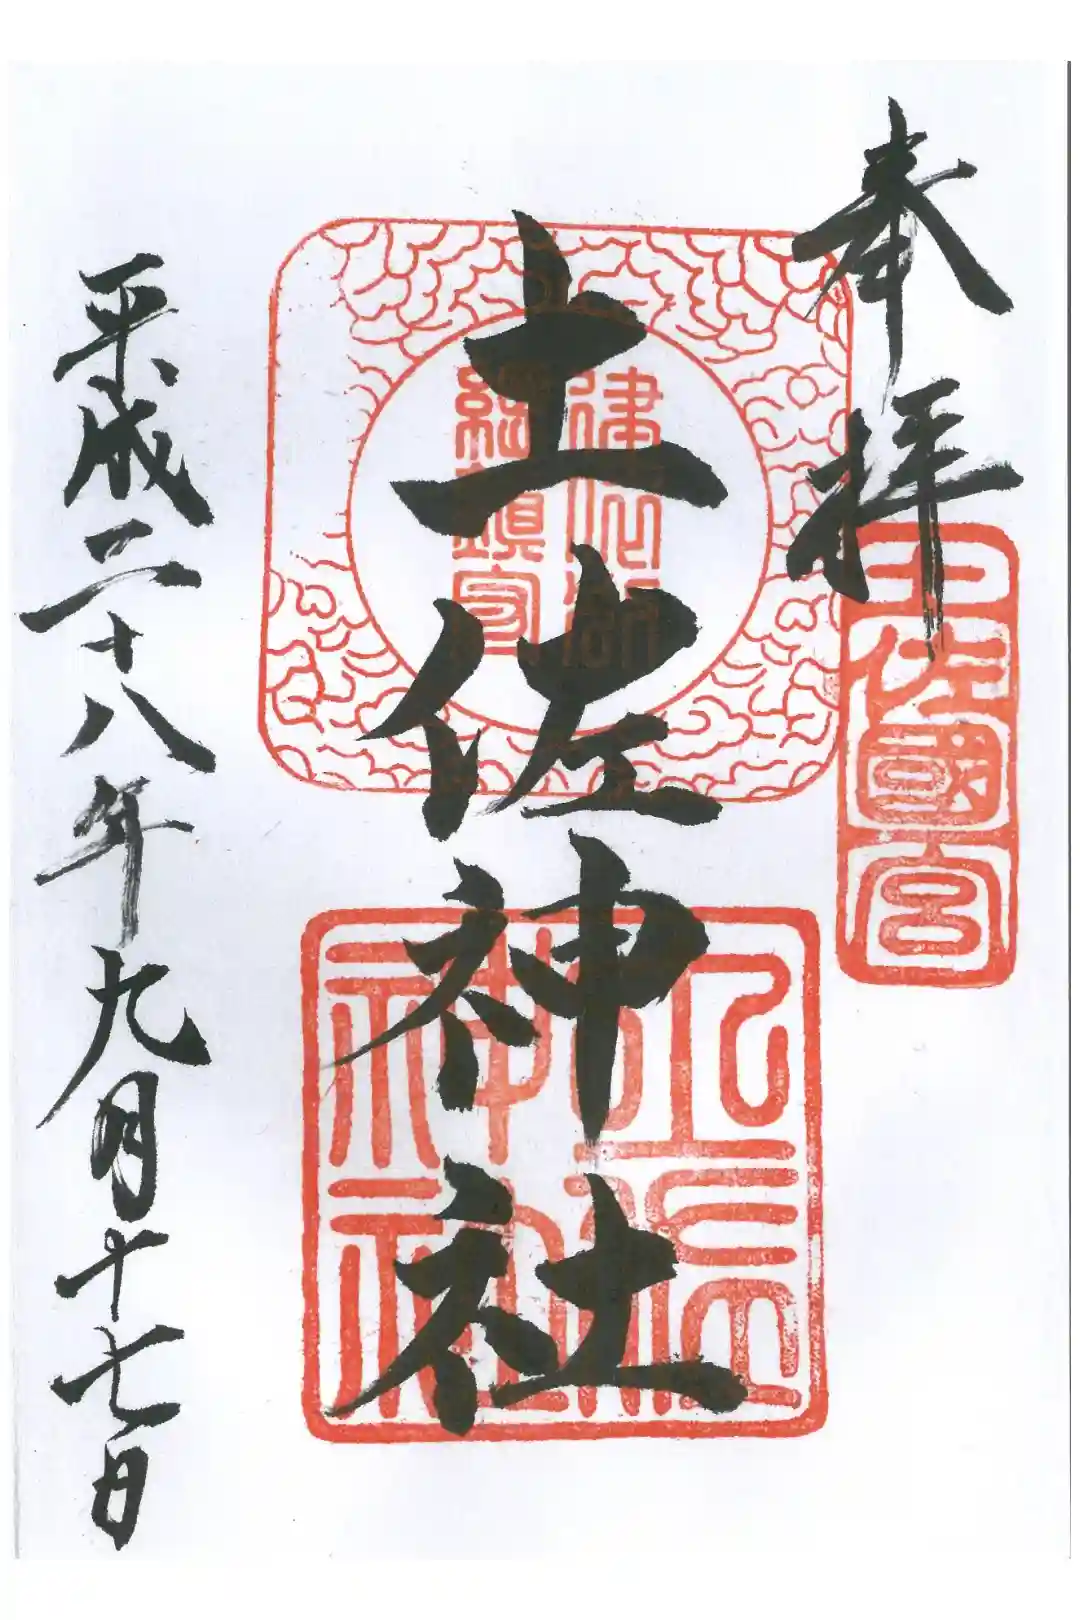 奉拝
土佐國一宮
總鎮守
土佐神社
土佐
神社
平成二十八年九月十七日